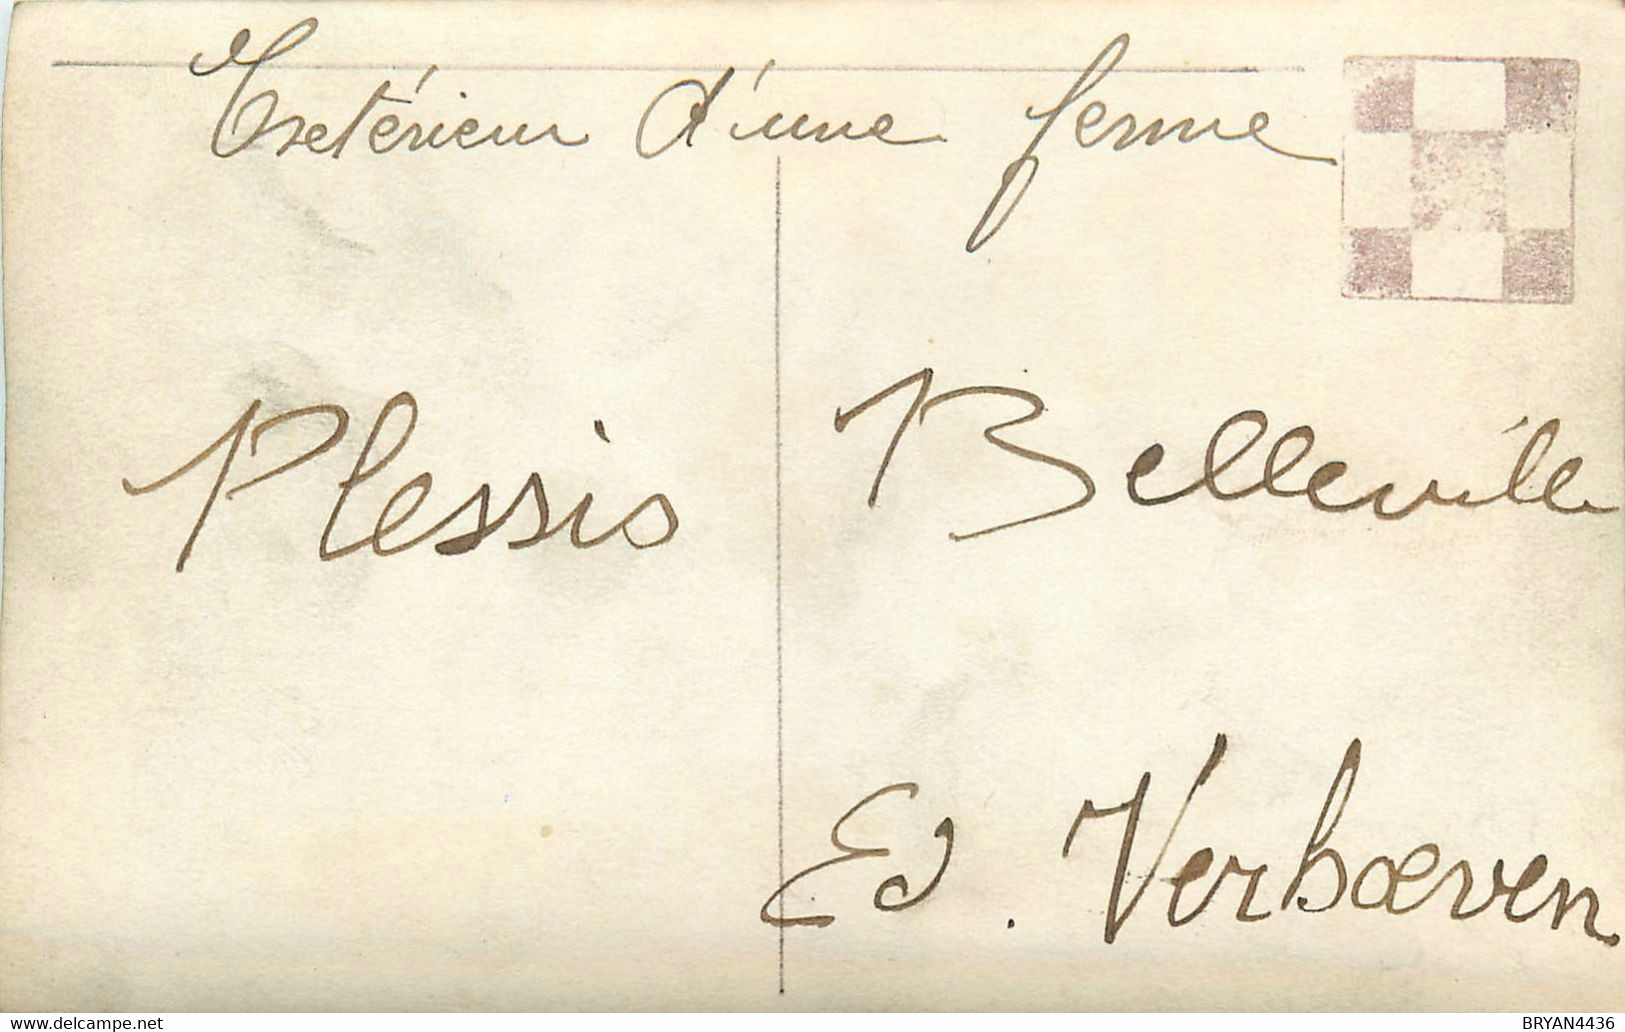 Extérieur d'une ferme
Plessis Belleville
Ed. Verhoeven
www.delcampe.net
BRYAN4436